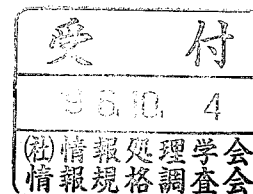 受付
96.10. 4
(社)情報処理学会
情報規格調査会